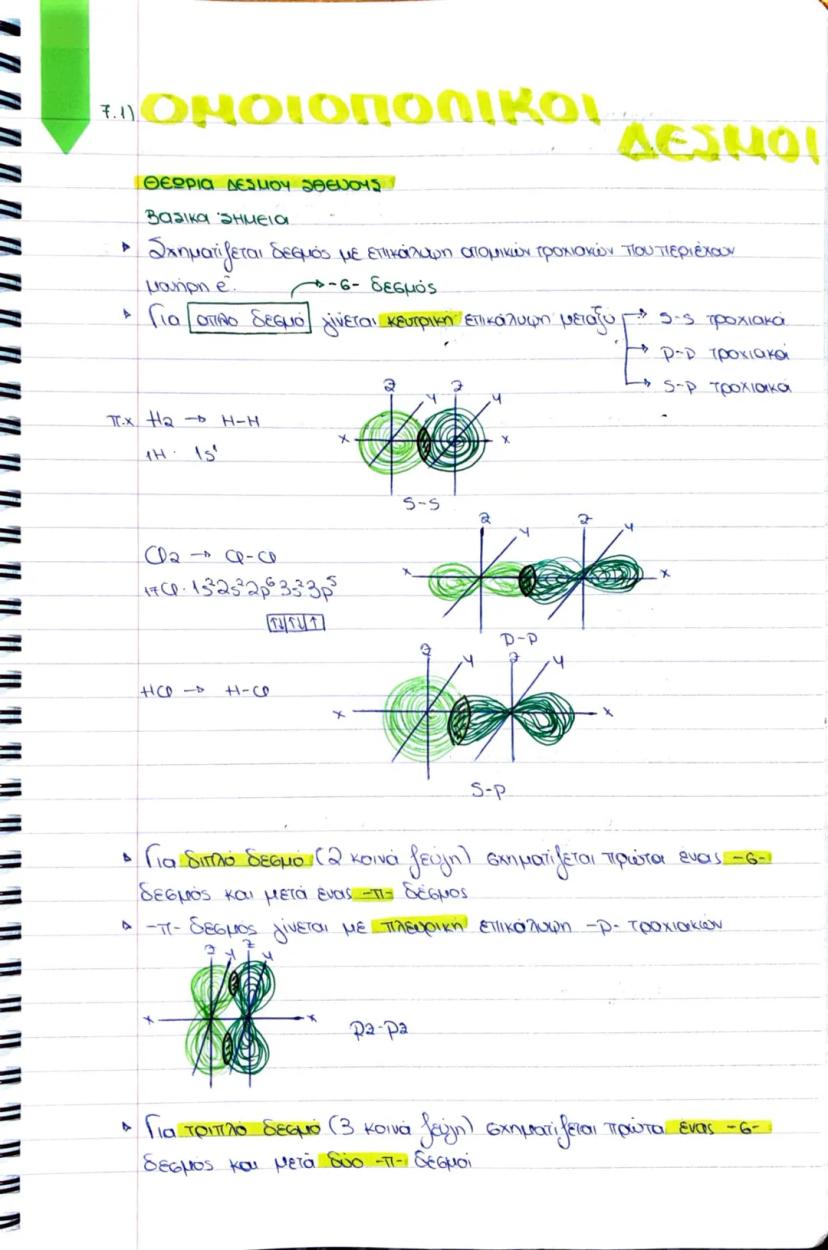 7.1) ΟΜΟΙΟΠΟΛΙΚΟΙ
ΔΕΣΜΟΙ
ΘΕΩΡΙΑ ΔΕΣΜΟΥ ΣΘΕΝΟΥΣ
ΒΑΣΙΚΑ ΣΗΜΕΙΑ
Σχηματίζεται δεσμός με επικάλυψη ατομικών τροχιακών που περιέχουν
μονήρη e⁻.
-σ- δεσμός
Για απλό δεσμό γίνεται κεντρική επικάλυψη μεταξύ → s-s τροχιακά
→ p-p τροχιακά
→ s-p τροχιακά
π.χ H2 → H-H
1H: 1s¹
z z
y y
x x
s-s
Cl2 → Cl-Cl
17Cl: 1s²2s²2p⁶3s²3p⁵
↑↓ ↑↓ ↑
z z
y y
x x
p-p
HCl → H-Cl
z z
y y
x x
s-p
Για διπλό δεσμό (2 κοινά ζεύγη) σχηματίζεται πρώτα ένας -σ-
δεσμός και μετά ένας -π- δεσμός
-π- δεσμός γίνεται με πλευρική επικάλυψη -p- τροχιακών
z y z y
x x
pz-pz
Για τριπλό δεσμό (3 κοινά ζεύγη) σχηματίζεται πρώτα ένας -σ-
δεσμός και μετά δύο -π- δεσμοί